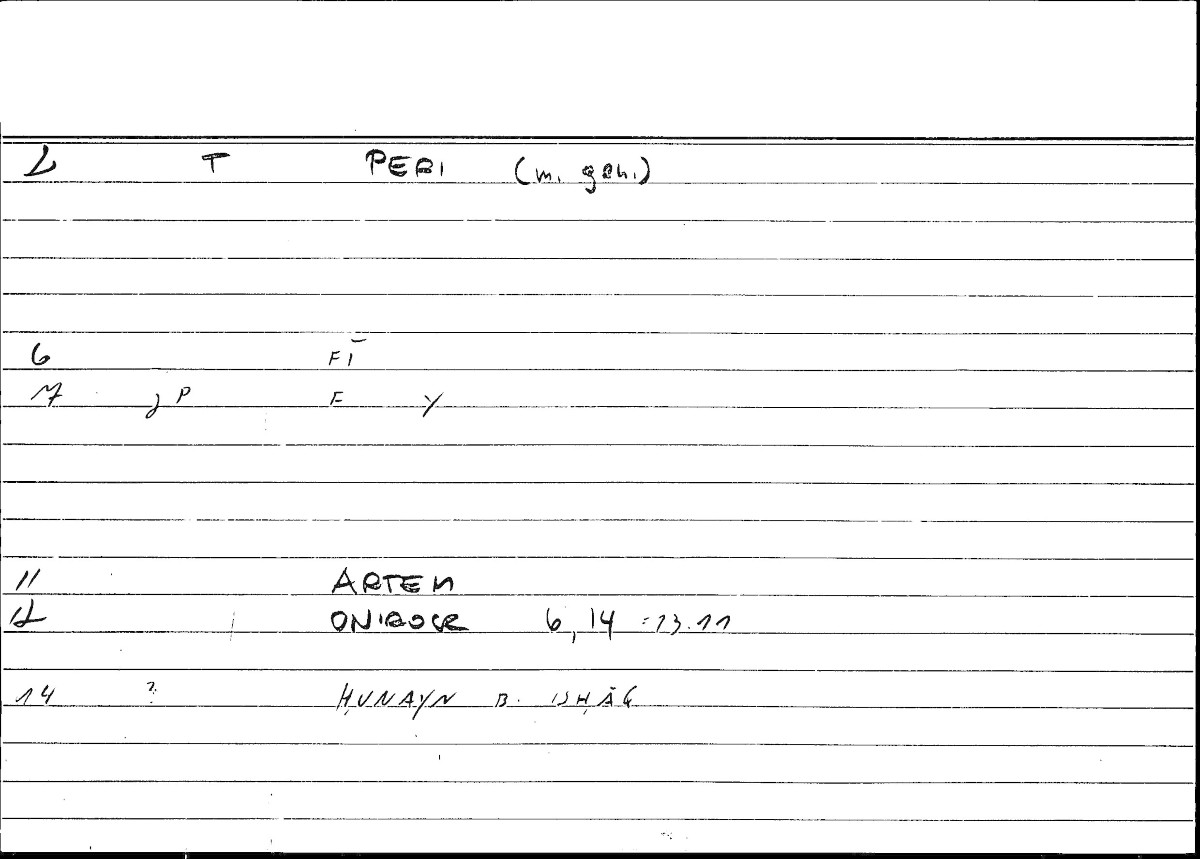 2 T PERI (m. gen.)
6 FĪ
17 jP F Y
11 ARTEM
12 ONIROCR 6,14 = 13.11
14 ? ḤUNAYN B. ISḤĀQ